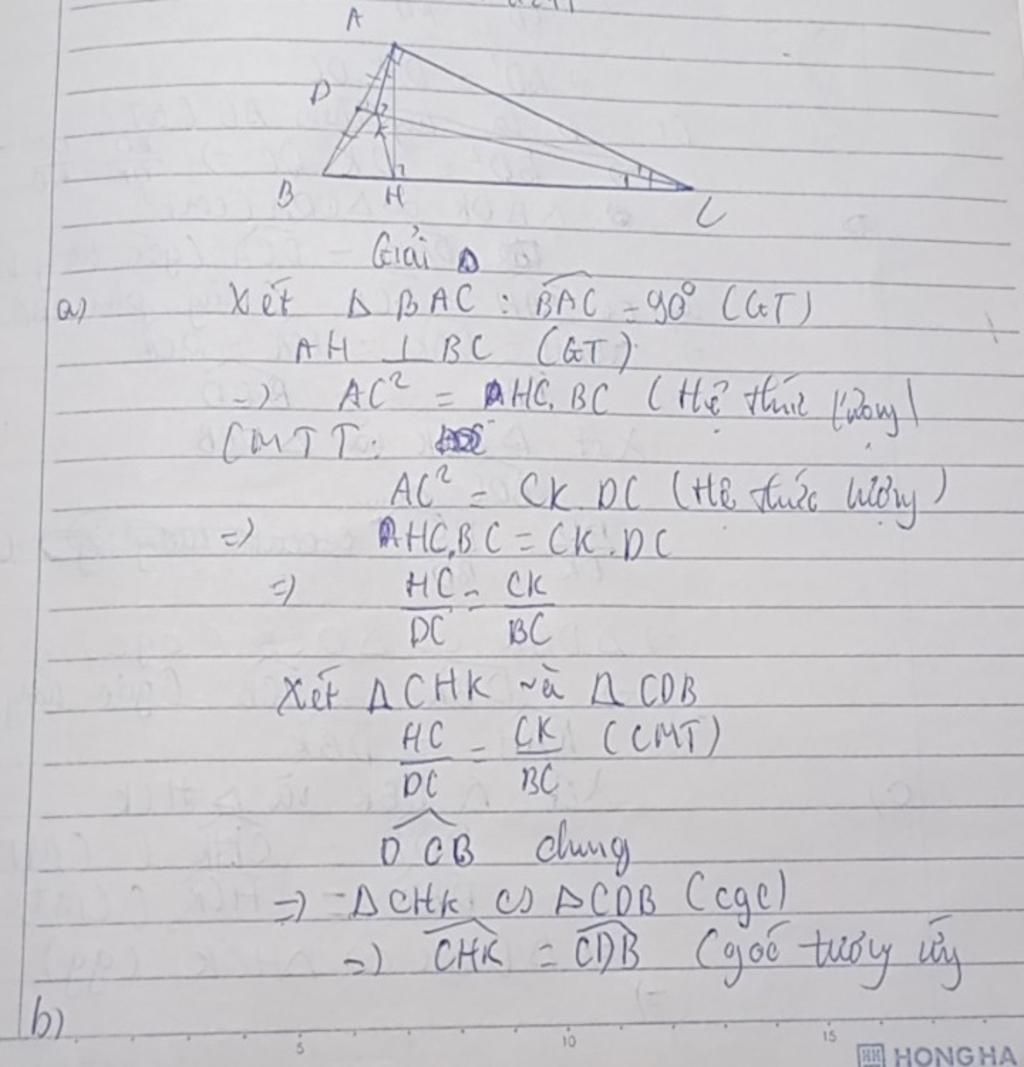 A
D
K
B H C
Giải
a) Xét Δ BAC : BAC = 90° (GT)
AH ⊥ BC (GT)
=> AC² = HC. BC (Hệ thức lượng)
CMTT:
AC² = CK. DC (Hệ thức lượng)
=> HC.BC = CK.DC
=> HC/DC = CK/BC
Xét ΔCHK và ΔCDB
HC/DC = CK/BC (CMT)
DCB chung
=> ΔCHK ᔕ ΔCDB (cgc)
=> CHK = CDB (góc tương ứng
b)
5 10 15
HH HONG HA